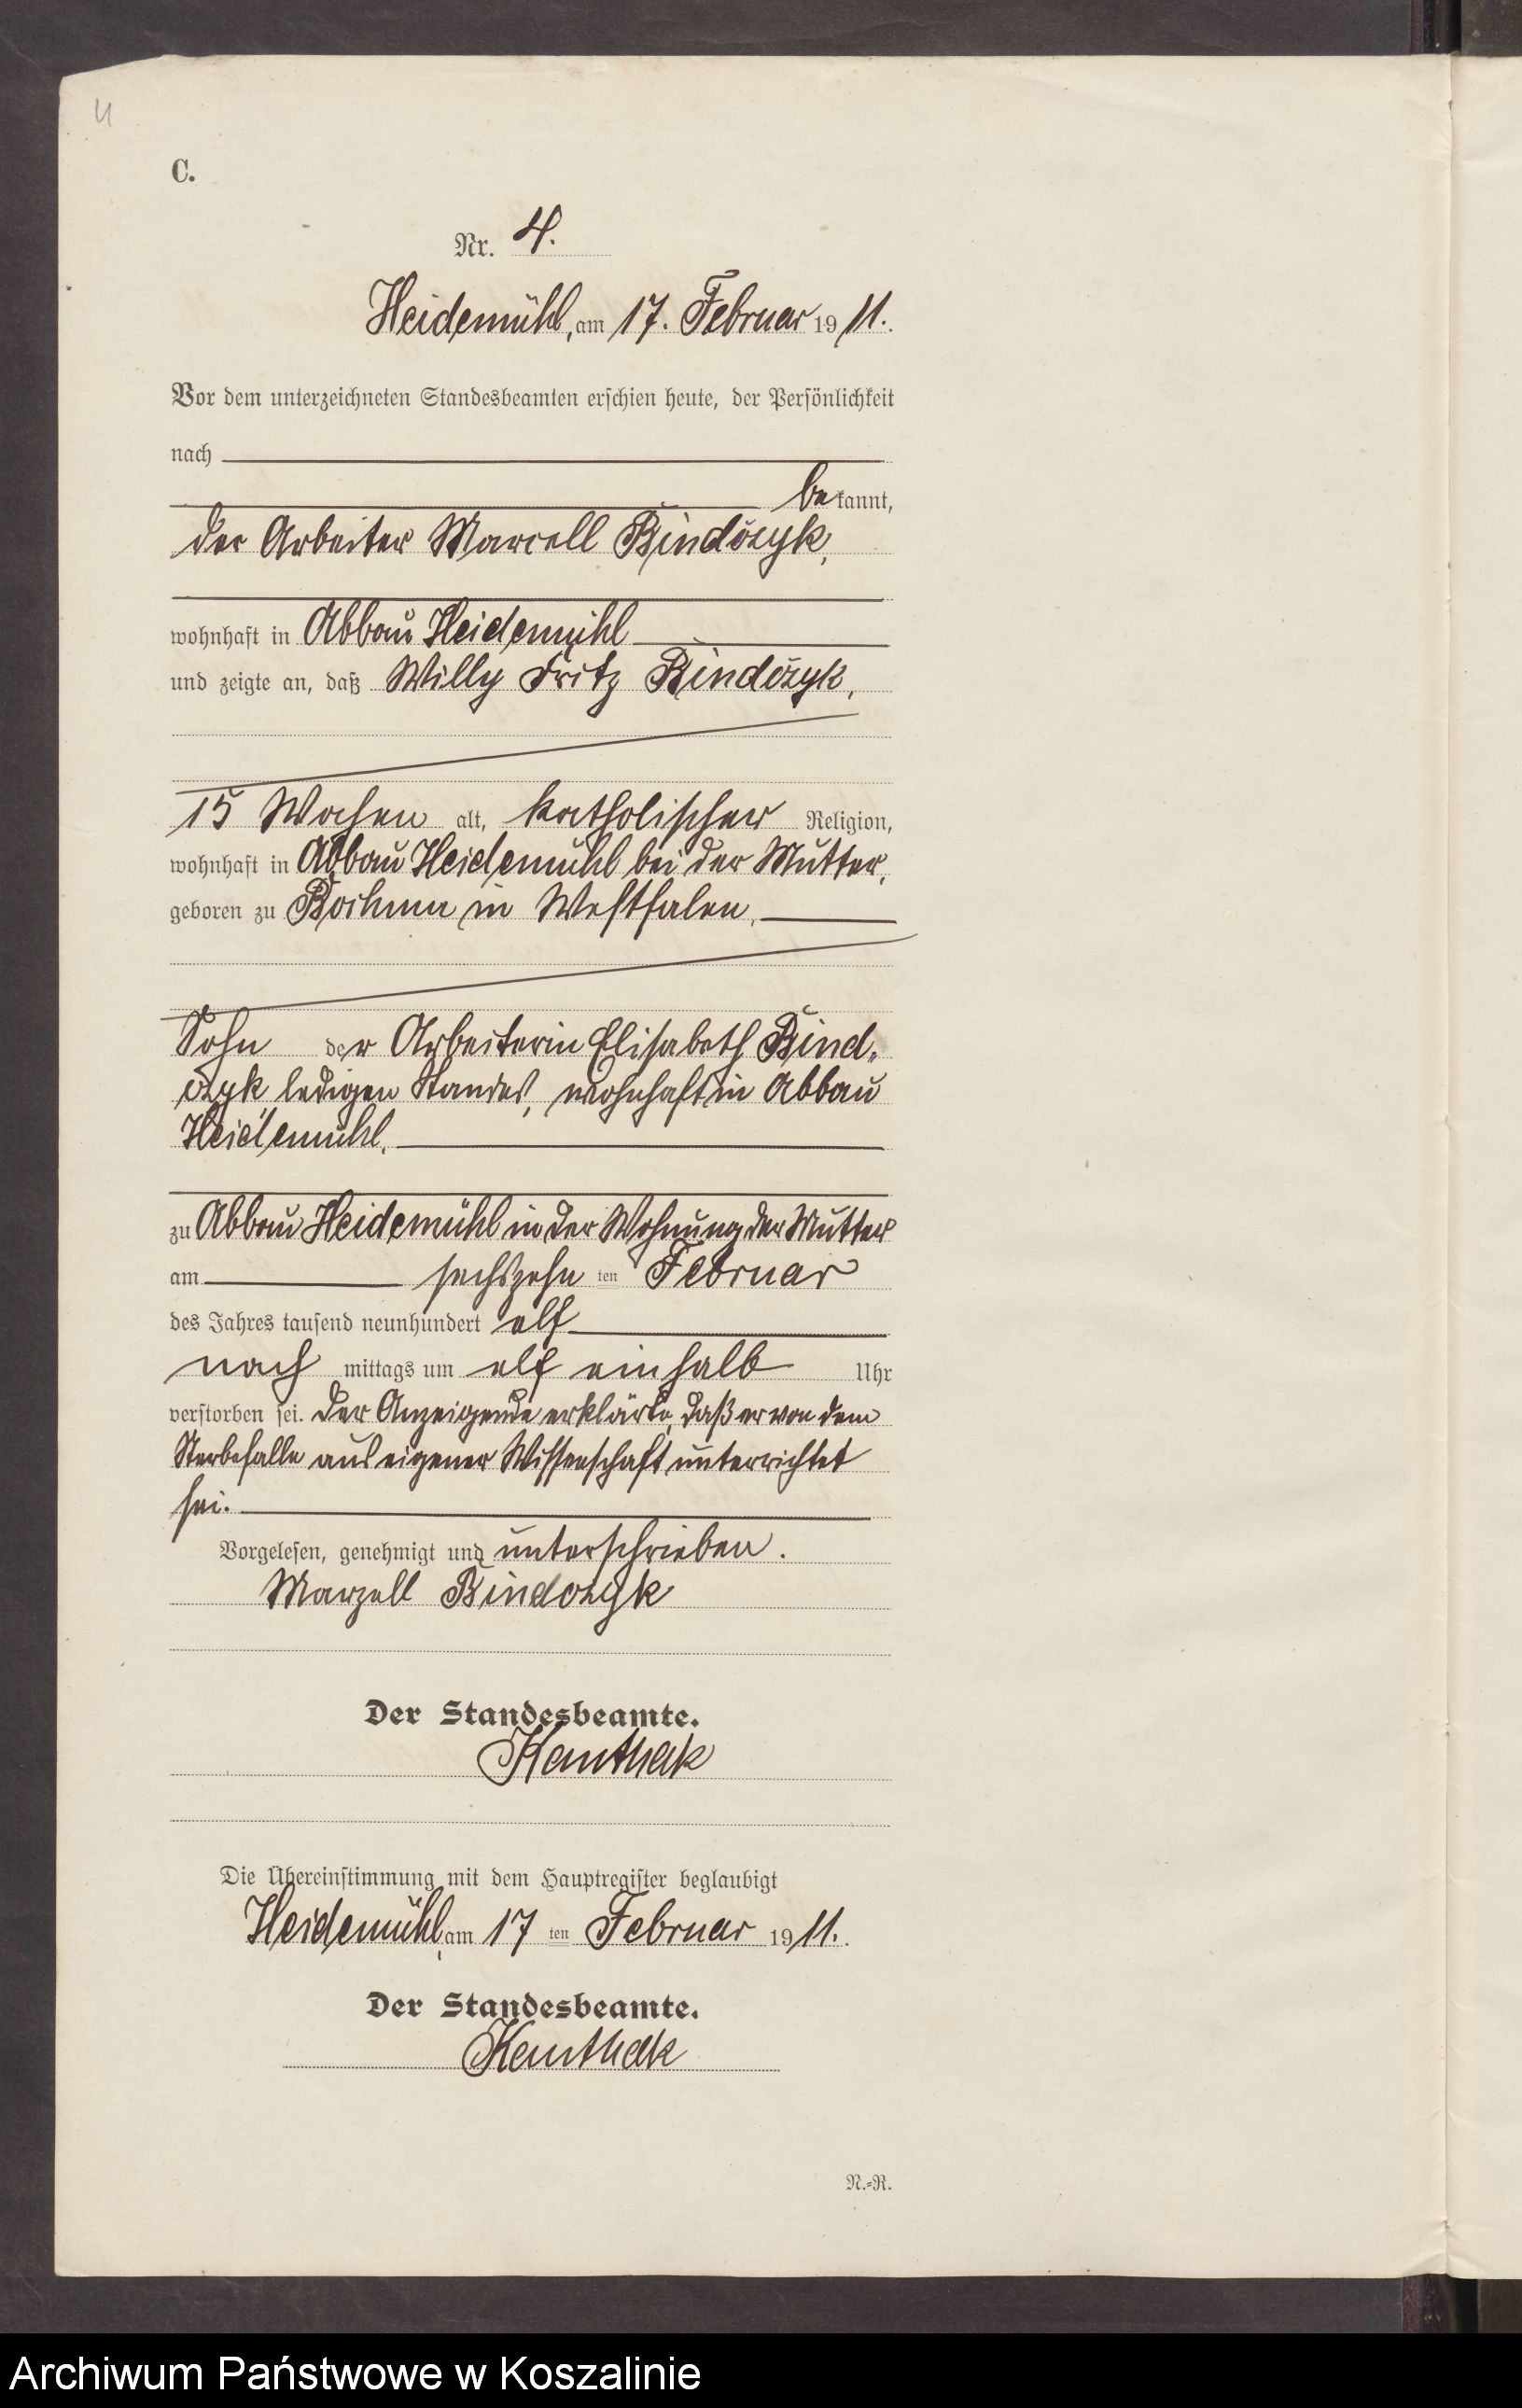 4
C.
Nr. 4.
Heidemühl, am 17. Februar 1911.
Vor dem unterzeichneten Standesbeamten erschien heute, der Persönlichkeit
nach
bekannt,
der Arbeiter Marcell Bindözyk,
wohnhaft in Abbau Heidemühl
und zeigte an, daß Willy Fritz Bindözyk,
15 Wochen alt, katholischer Religion,
wohnhaft in Abbau Heidemühl bei der Mutter,
geboren zu in Westfalen,
Sohn der Arbeiterin Elisabeth Bind-
özyk ledigen Standes, wohnhaft in Abbau
Heidemühl,
zu Abbau Heidemühl in der Wohnung der Mutter
am sechszehnten Februar
des Jahres tausend neunhundert elf
nachmittags um elf einhalb Uhr
verstorben sei. Der Anzeigende erklärte, daß er von dem
Sterbefalle aus eigener Wissenschaft unterrichtet
sei.
Vorgelesen, genehmigt und unterschrieben.
Marzell Bindozyk
Der Standesbeamte.
Kanthak
Die Übereinstimmung mit dem Hauptregister beglaubigt
Heidemühl, am 17ten Februar 1911.
Der Standesbeamte.
Kanthak
N.=R.
Archiwum Państwowe w Koszalinie